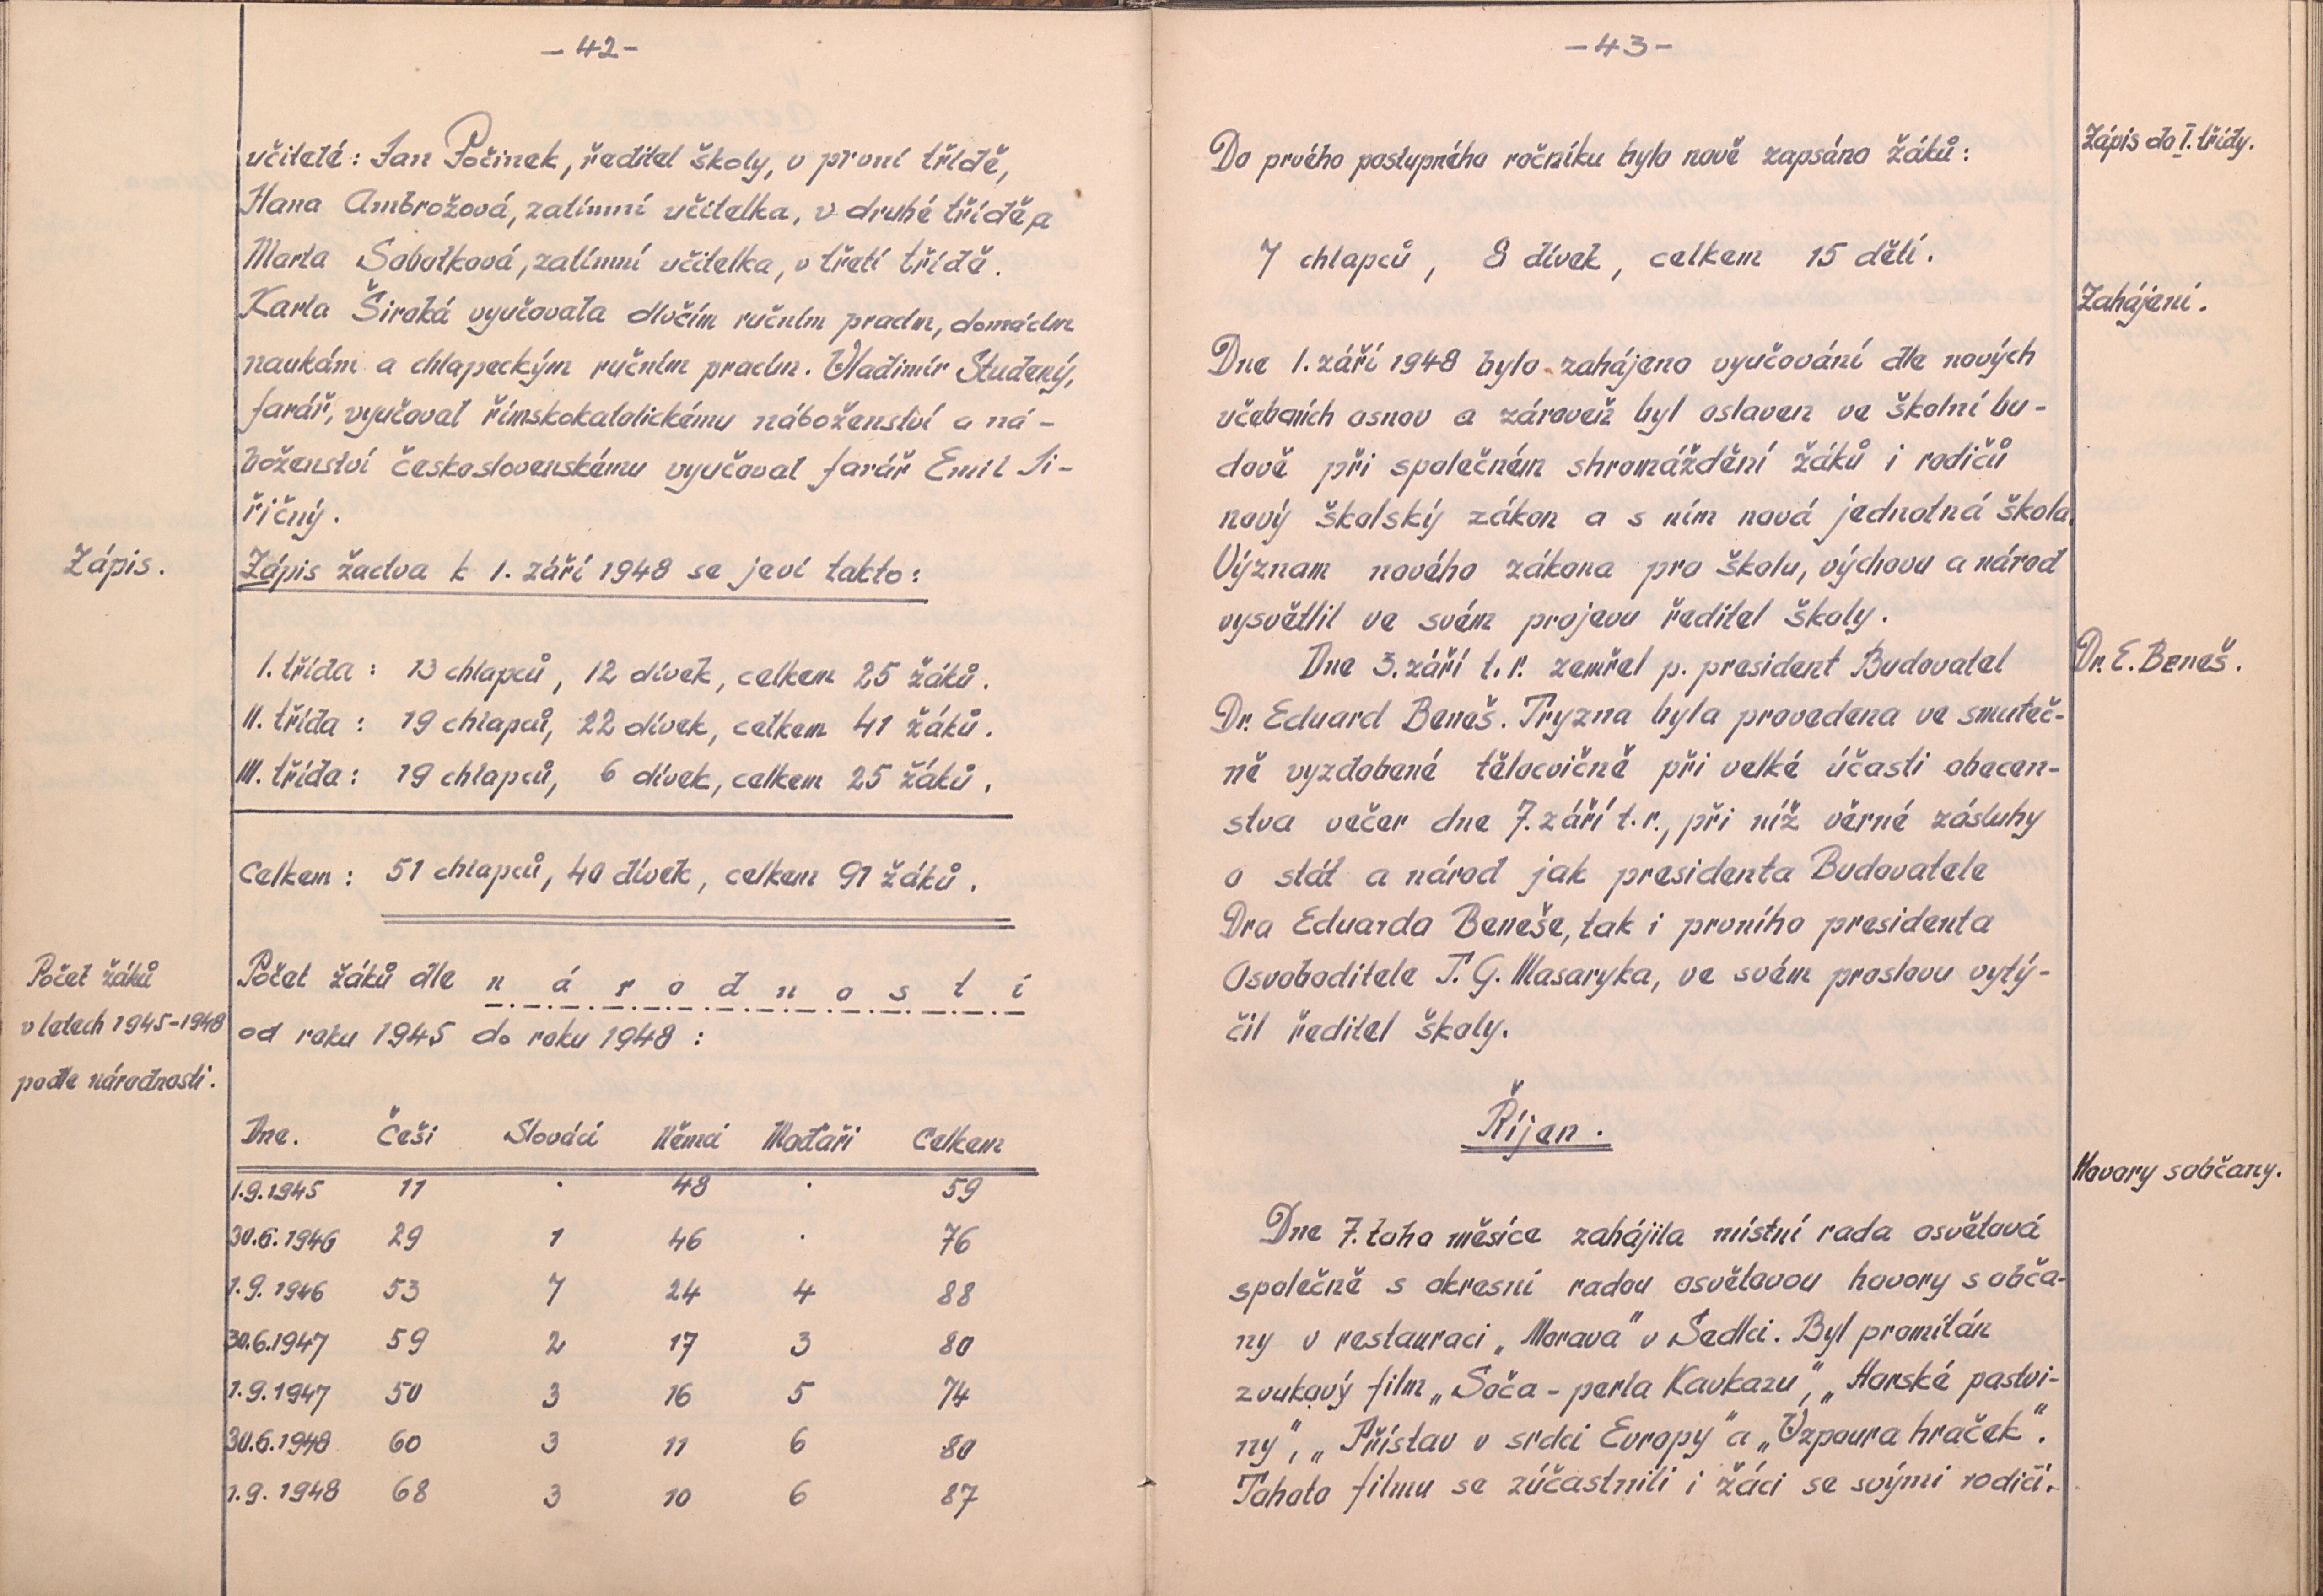 - 42 -
učitelé: Jan Počinek, ředitel školy, v první třídě,
Hana Ambrožová, zatímní učitelka, v druhé třídě a
Marta Sobotková, zatímní učitelka, v třetí třídě.
Karla Široká vyučovala dívčím ručním pracím, domácím
naukám a chlapeckým ručním pracím. Vladimír Studený,
farář, vyučoval římskokatolickému náboženství a ná-
boženství československému vyučoval farář Emil Ji-
řičný.
Zápis.
Zápis žactva k 1. září 1948 se jeví takto:
I. třída: 13 chlapců, 12 dívek, celkem 25 žáků.
II. třída: 19 chlapců, 22 dívek, celkem 41 žáků.
III. třída: 19 chlapců, 6 dívek, celkem 25 žáků.
Celkem: 51 chlapců, 40 dívek, celkem 91 žáků.
Počet žáků
v letech 1945-1948
podle národnosti.
Počet žáků dle n á r o d n o s t í
od roku 1945 do roku 1948:
Dne. Češi Slováci Němci Maďaři Celkem
1.9.1945 11 . 48 . 59
30.6.1946 29 1 46 . 76
1.9.1946 53 7 24 4 88
30.6.1947 59 2 17 3 80
1.9.1947 50 3 16 5 74
30.6.1948 60 3 11 6 80
1.9.1948 68 3 10 6 87
- 43 -
Zápis do I. třídy.
Do prvého postupného ročníku bylo nově zapsáno žáků:
7 chlapců, 8 dívek, celkem 15 dětí.
Zahájení.
Dne 1. září 1948 bylo zahájeno vyučování dle nových
učebních osnov a zároveň byl oslaven ve školní bu-
dově při společném shromáždění žáků i rodičů
nový školský zákon a s ním nová jednotná škola.
Význam nového zákona pro školu, výchovu a národ
vysvětlil ve svém projevu ředitel školy.
Dr. E. Beneš.
Dne 3. září t. r. zemřel p. president Budovatel
Dr. Eduard Beneš. Tryzna byla provedena ve smuteč-
ně vyzdobené tělocvičně při velké účasti obecen-
stva večer dne 7. září t. r., při níž věrné zásluhy
o stát a národ jak presidenta Budovatele
Dra Eduarda Beneše, tak i prvního presidenta
Osvoboditele T. G. Masaryka, ve svém proslovu vytý-
čil ředitel školy.
Říjen.
Hovory s občany.
Dne 7. toho měsíce zahájila místní rada osvětová
společně s okresní radou osvětovou hovory s obča-
ny v restauraci „Morava" v Sedlci. Byl promítán
zvukový film „Soča - perla Kavkazu", „Horské pastvi-
ny", „Přístav v srdci Evropy" a „Vzpoura hraček".
Tohoto filmu se zúčastnili i žáci se svými rodiči.